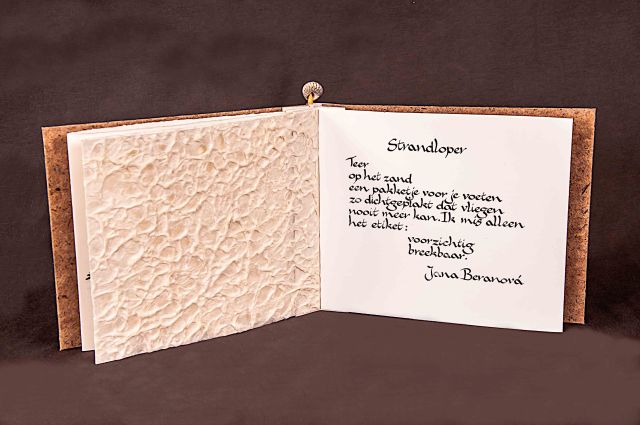 Strandloper
Teer
op het zand
een pakketje voor je voeten
zo dichtgeplakt dat vliegen
nooit meer kan. Ik mis alleen
het etiket:
voorzichtig
breekbaar.
Jana Beranová